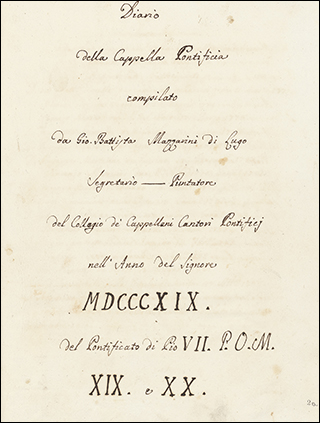 Diario
della Cappella Pontificia
compilato
da Gio. Battista Mazzarini di Lugo
Segretario — Puntatore
del Collegio de' Cappellani Cantori Pontificj
nell'Anno del Signore
MDCCCXIX.
del Pontificato di Pio VII. P. O. M.
XIX. e XX.